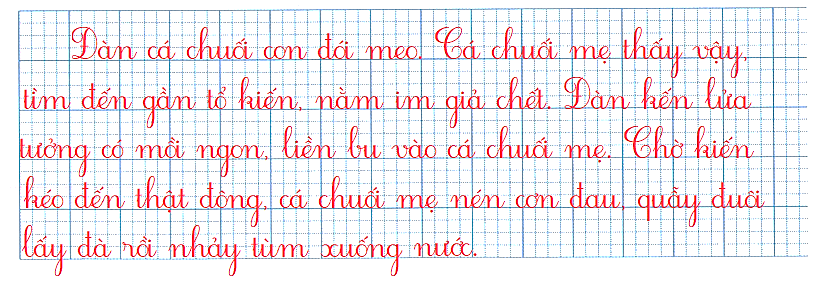 Đàn cá chuối con đói meo. Cá chuối mẹ thấy vậy,
tìm đến gần tổ kiến, nằm im giả chết. Đàn kến lửa
tưởng có mồi ngon, liền bu vào cá chuối mẹ. Chờ kiến
kéo đến thật đông, cá chuối mẹ nén cơn đau, quẫy đuôi
lấy đà rồi nhảy tùm xuống nước.